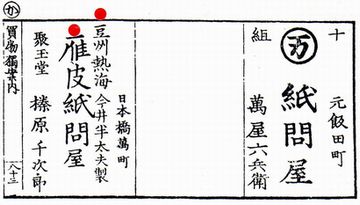 十組
万
元飯田町
紙問屋
萬屋六兵衛
日本橋萬町
豆州熱海今井半太夫製
雁皮紙問屋
聚玉堂 榛原千次郎
か
買物獨案内
八十三